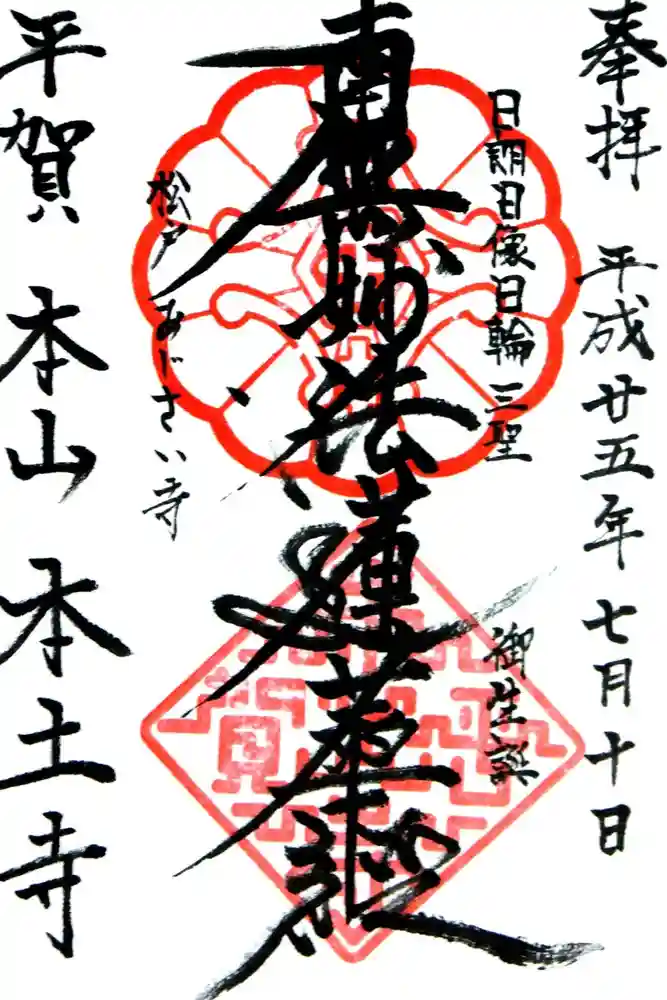 奉拝 平成廿五年七月十日
日朗日像日輪三聖
御生誕
南無妙法蓮華経
松戸 あじさい寺
平賀 本山 本土寺